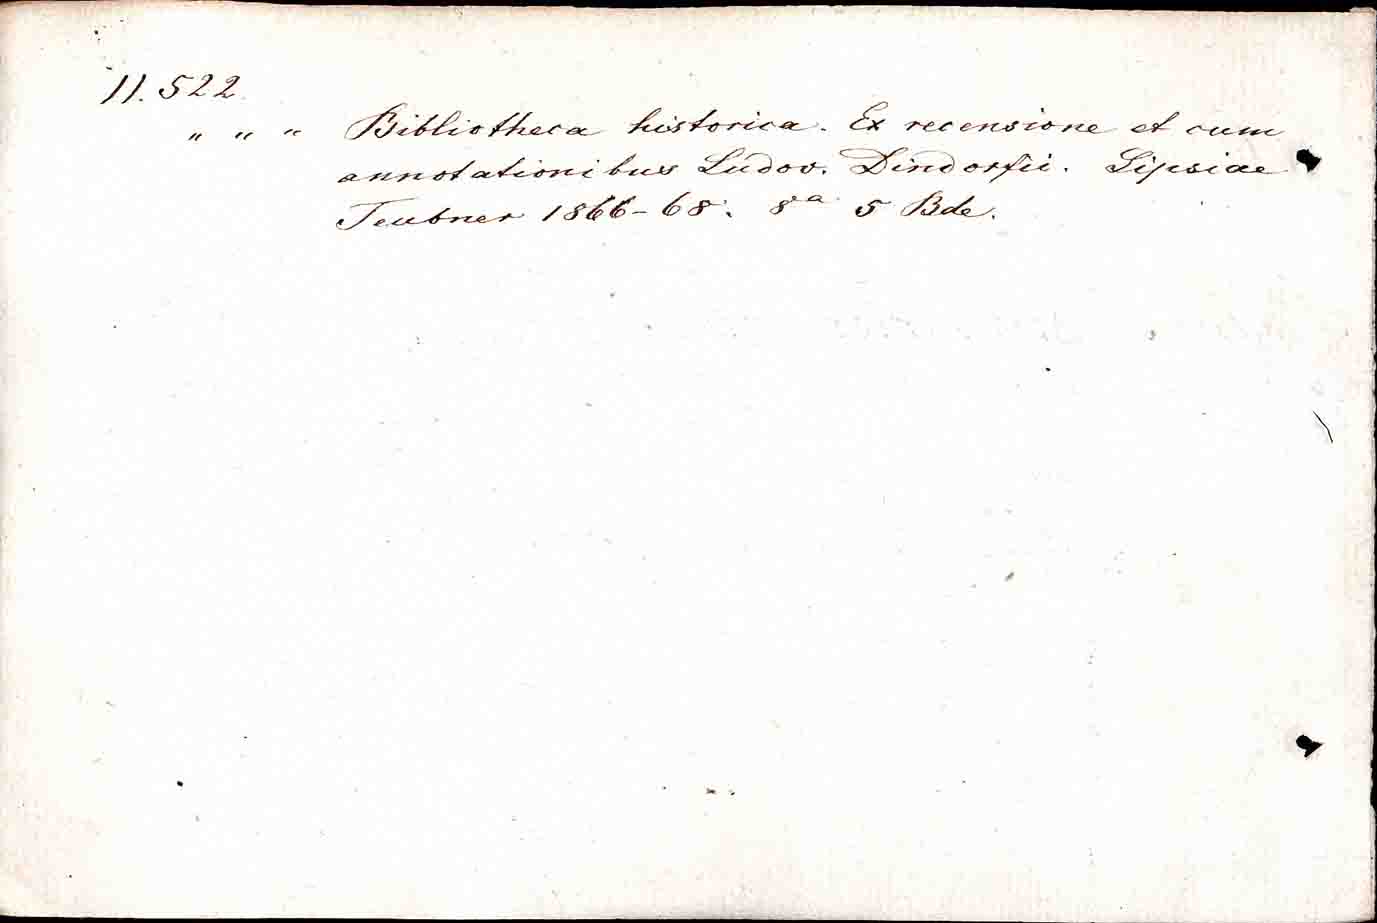 11.522
" " " Bibliotheca historica. Ex recensione et cum
annotationibus Ludov. Dindorfii. Lipsiae
Teubner 1866-68. 8a 5 Bde.